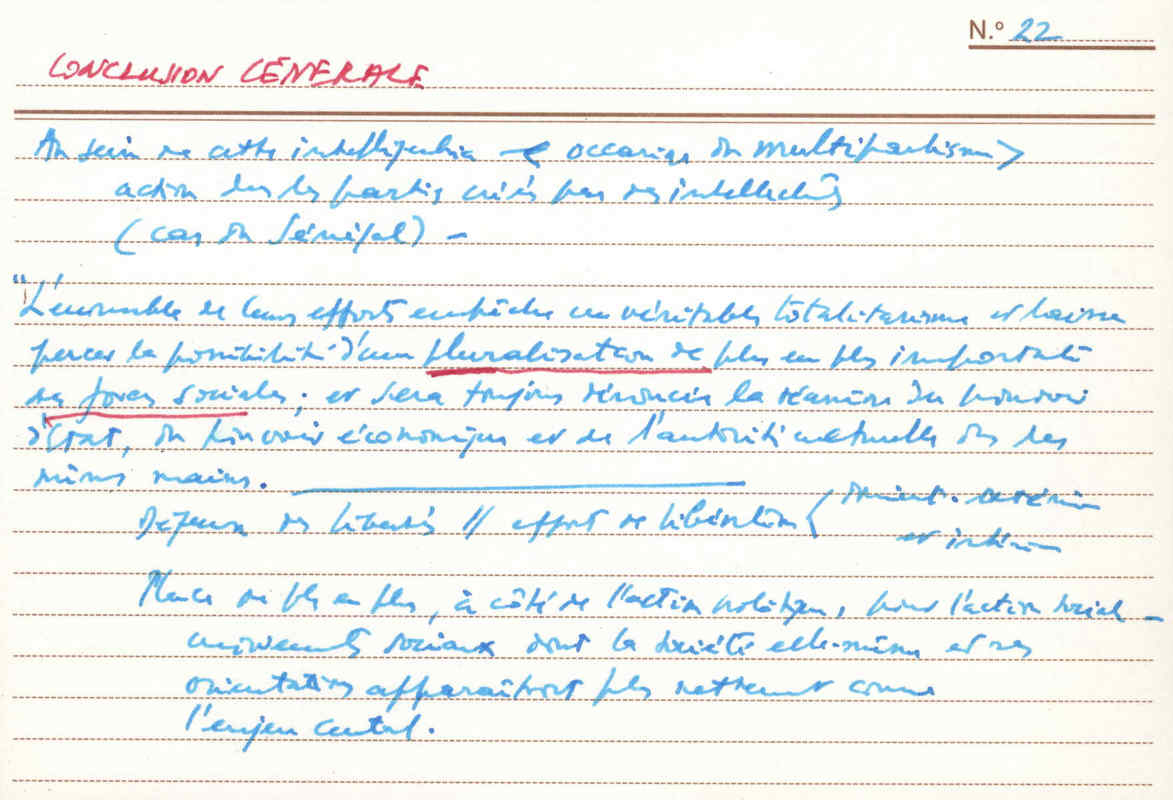 N.º 22
CONCLUSION GÉNÉRALE
Au sein de cette intelligentsia < occasion du multipartisme >
action des partis créés par des intellectuels
(cas du Sénégal) –
"L'ensemble de leurs efforts empêche un véritable totalitarisme et laisse
percer la possibilité d'une pluralisation de plus en plus importante
des forces sociales ; et sera toujours dénoncée la réunion du pouvoir
d'État, du pouvoir économique et de l'autorité culturelle dans les
mêmes mains.
Défense des libertés // effort de libération (
et intérieur
Place de plus en plus, à côté de l'action politique, pour l'action sociale –
mouvements sociaux dont la société elle-même et ses
orientations apparaîtront plus nettement comme
l'enjeu central.